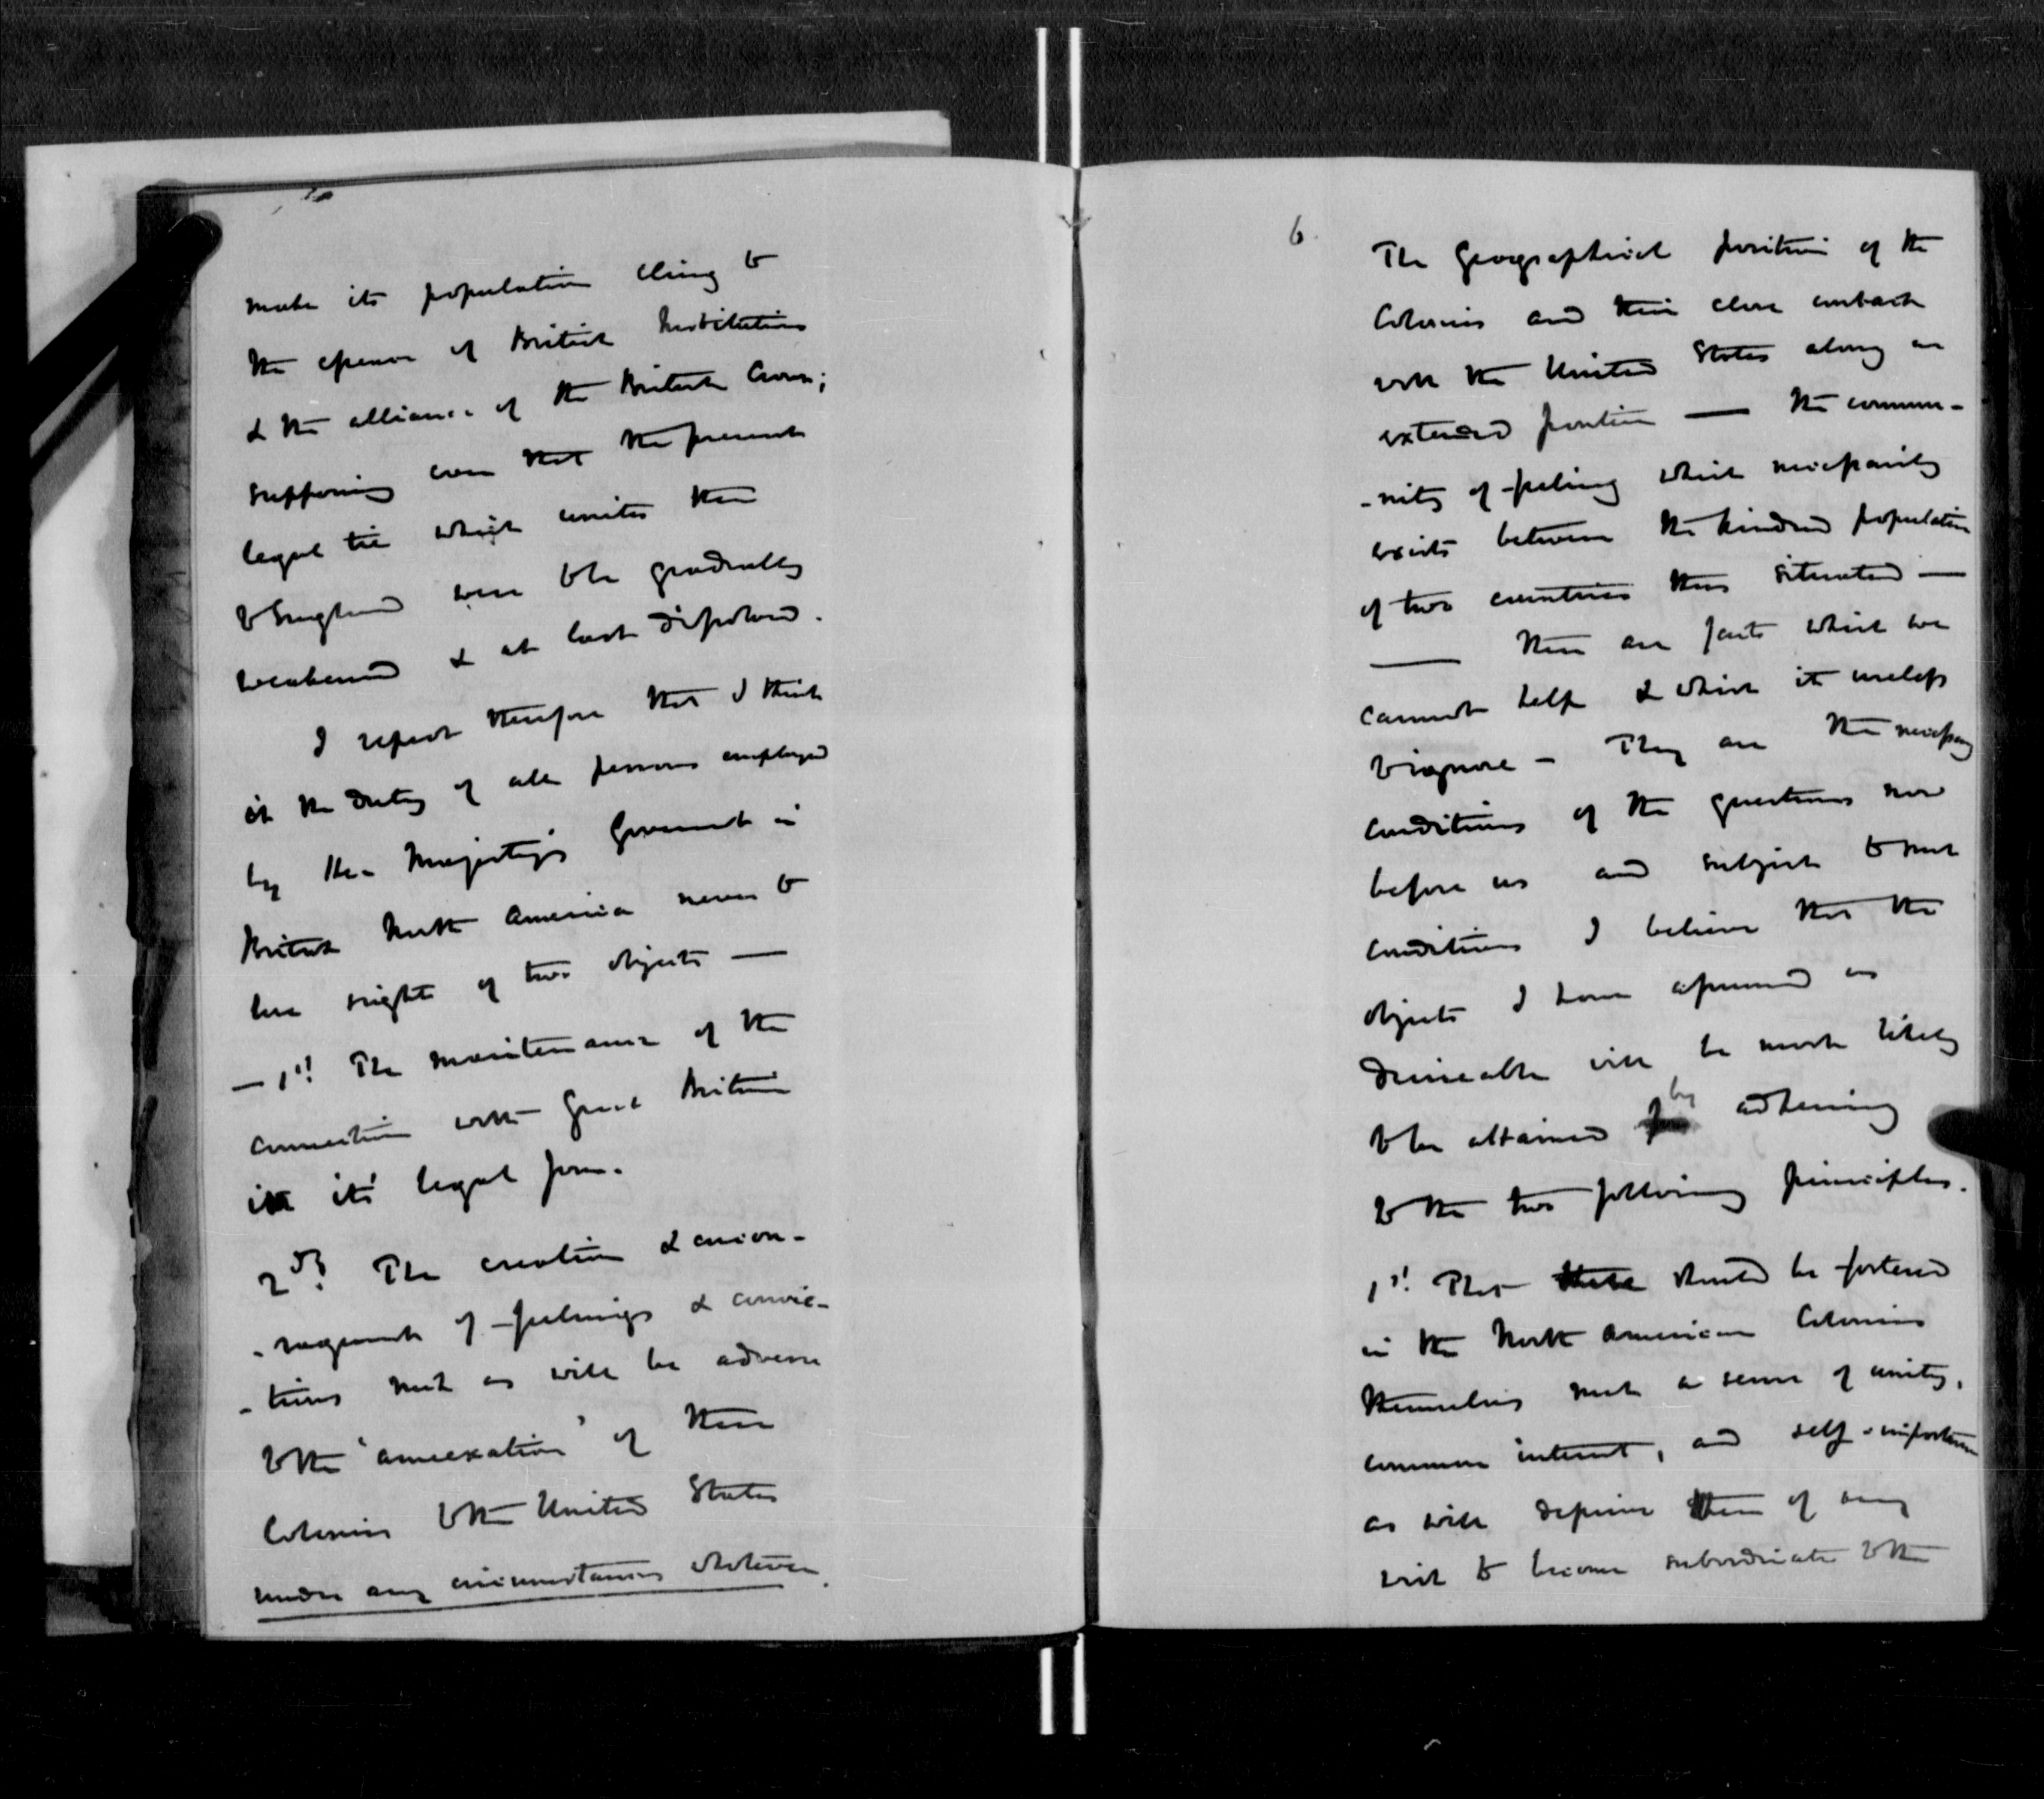 make its population cling to
the essence of British Institutions
& the alliance of the British Crown;
supposing even that the present
legal tie which unites them
to England were to be gradually
weakened & at last dissolved.
I repeat therefore that I think
it the duty of all persons employed
by Her Majesty's Government in
British North America never to
lose sight of two objects —
— 1st. The maintenance of the
connection with Great Britain
in its legal form.
2dly. The creation & encou-
-ragement of feelings & convic-
-tions such as will be adverse
to the 'annexation' of these
Colonies to the United States
under any circumstances whatever.
6
The Geographical position of the
Colonies and their close contact
with the United States along an
extended frontier — the commu-
-nity of feeling which necessarily
exists between the kindred population
of two countries thus situated —
— These are facts which we
cannot help & which it useless
to ignore — They are the necessary
conditions of the questions now
before us and subject to such
conditions I believe that the
objects I have assumed as
desireable will be most likely
to be attained by adhering
to the two following principles.
1st. That there should be fostered
in the North American Colonies
themselves such a sense of unity,
common interest, and self-importance
as will deprive them of any
wish to become subordinate to the